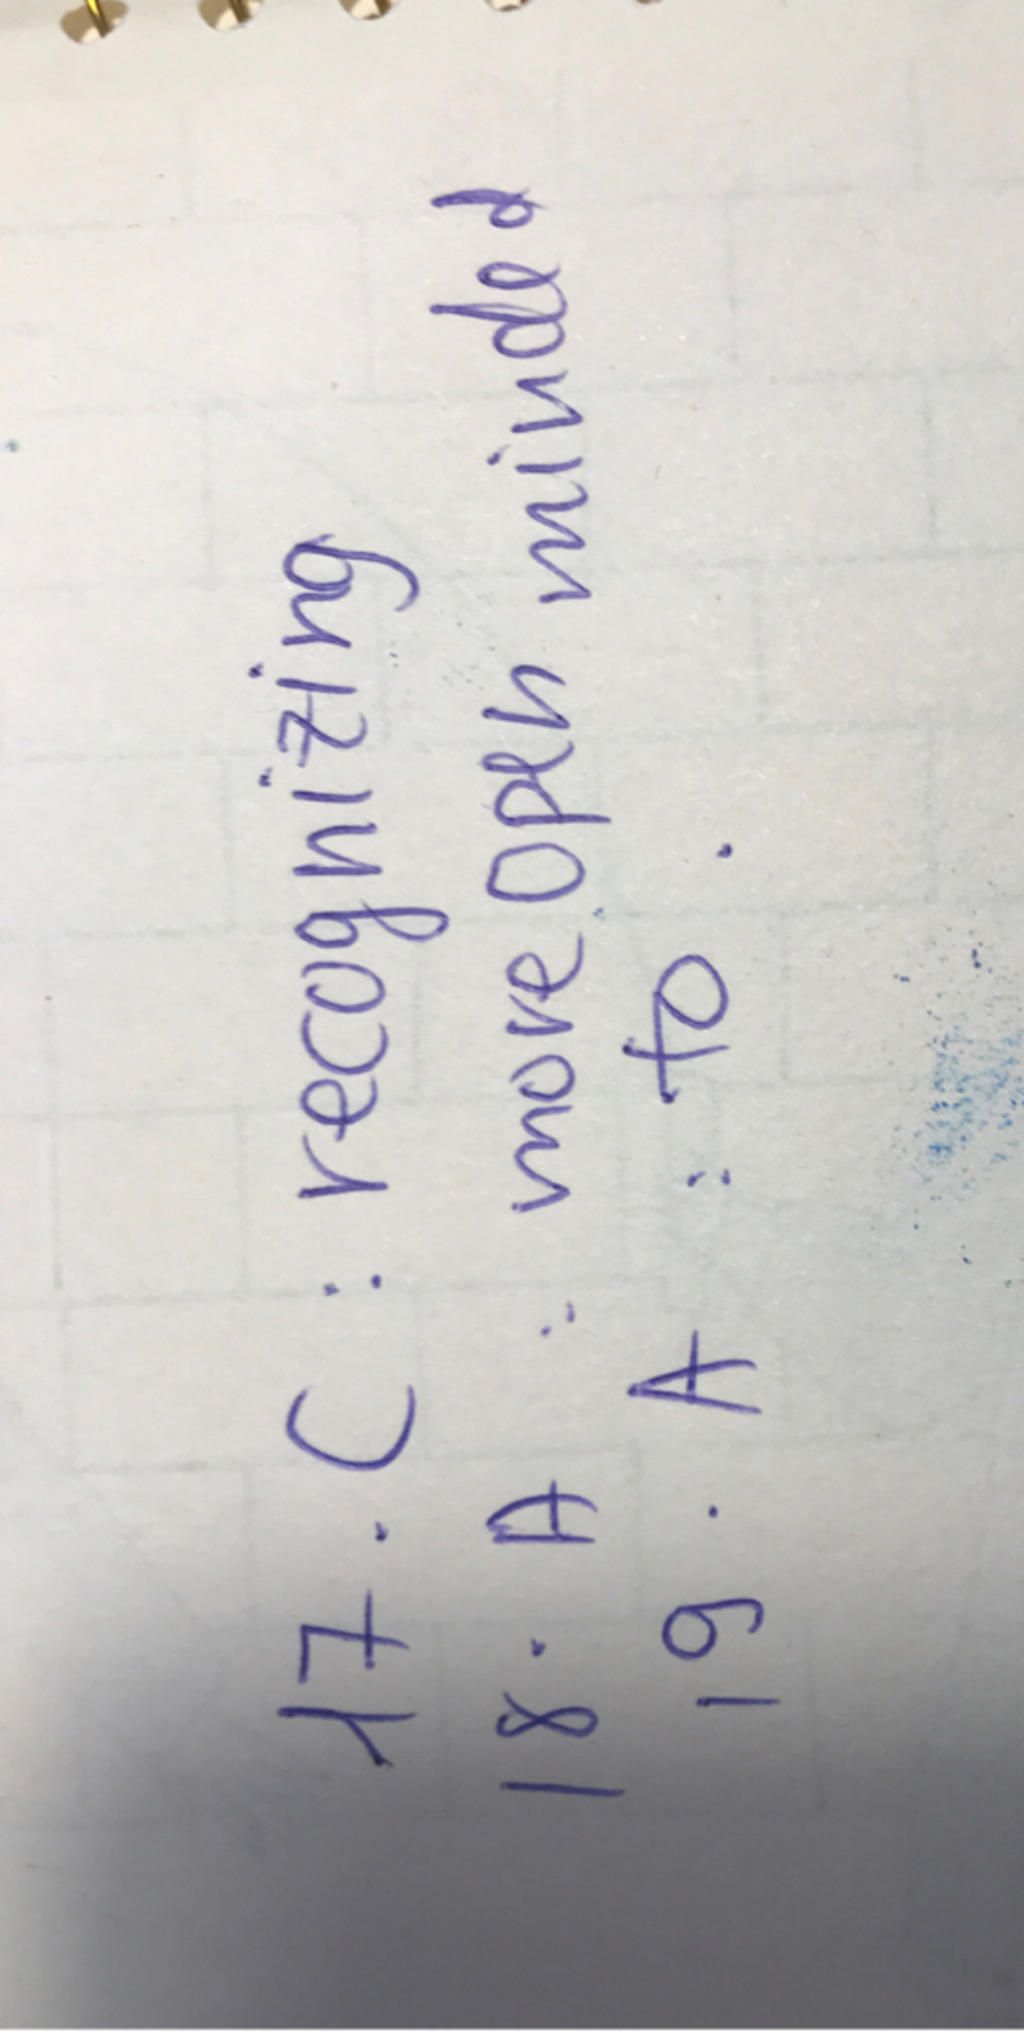 17. C : recognizing
18. A : more open minded
19. A : to.